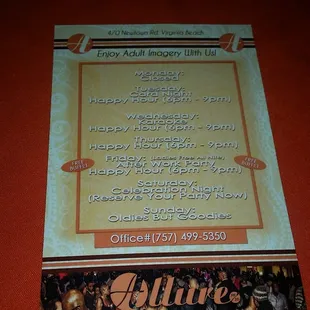 Newtown Rd. Virginia Beach
A
A
Enjoy Adult Imagery With Us!
Monday:
Closed
Tuesday:
Card Night
Happy Hour (6pm - 9pm)
Wednesday:
Karaoke
Happy Hour (6pm - 9pm)
Thursday:
Happy Hour (6pm - 9pm)
Friday: (Ladies Free All Nite)
After Work Party
Happy Hour (6pm - 9pm)
FREE
BUFFET
FREE
BUFFET
Saturday:
Celebration Night
(Reserve Your Party Now)
Sunday:
Oldies But Goodies
Office#(757) 499-5350
Allure